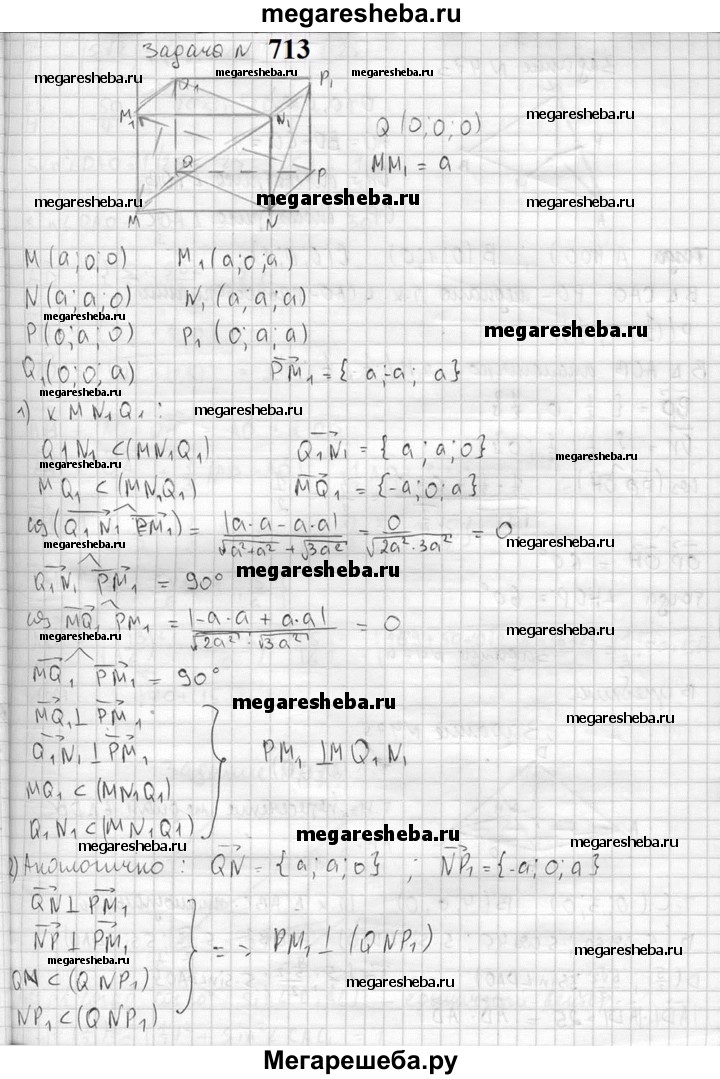 megaresheba.ru
Задача N 713
megaresheba.ru megaresheba.ru megaresheba.ru
Q1 P1
M1 N1 Q (0; 0; 0)
Q P MM1 = a
megaresheba.ru megaresheba.ru
M N
M (a; 0; 0) M1 (a; 0; a)
N (a; a; 0) N1 (a; a; a)
megaresheba.ru
P (0; a; 0) P1 (0; a; a) megaresheba.ru
Q1 (0; 0; a) PM1 = { a; -a; a}
megaresheba.ru
1) к MN1Q1 : megaresheba.ru
Q1N1 ⊂ (MN1Q1) Q1N1 = { a; a; 0}
megaresheba.ru megaresheba.ru
MQ1 ⊂ (MN1Q1) MQ1 = {-a; 0; a}
cos (Q1N1 PM1) = |a·a - a·a| / √a²+a² + √3a² = 0 / √2a²·3a² = 0
megaresheba.ru
megaresheba.ru
Q1N1 PM1 = 90°
cos MQ1 PM1 = |-a·a + a·a| / √2a² · √3a² = 0
megaresheba.ru megaresheba.ru
MQ1 PM1 = 90°
megaresheba.ru
MQ1 ⊥ PM1 megaresheba.ru
Q1N1 ⊥ PM1 PM1 ⊥ MQ1N1
MQ1 ⊂ (MN1Q1)
Q1N1 ⊂ (MN1Q1) megaresheba.ru
megaresheba.ru
2) Аналогично : QN = { a; a; 0} ; NP1 = {-a; 0; a}
megaresheba.ru
QN ⊥ PM1
NP ⊥ PM1 => PM1 ⊥ (QNP1)
megaresheba.ru
QN ⊂ (QNP1) megaresheba.ru
NP1 ⊂ (QNP1)
Мегарешеба.ру